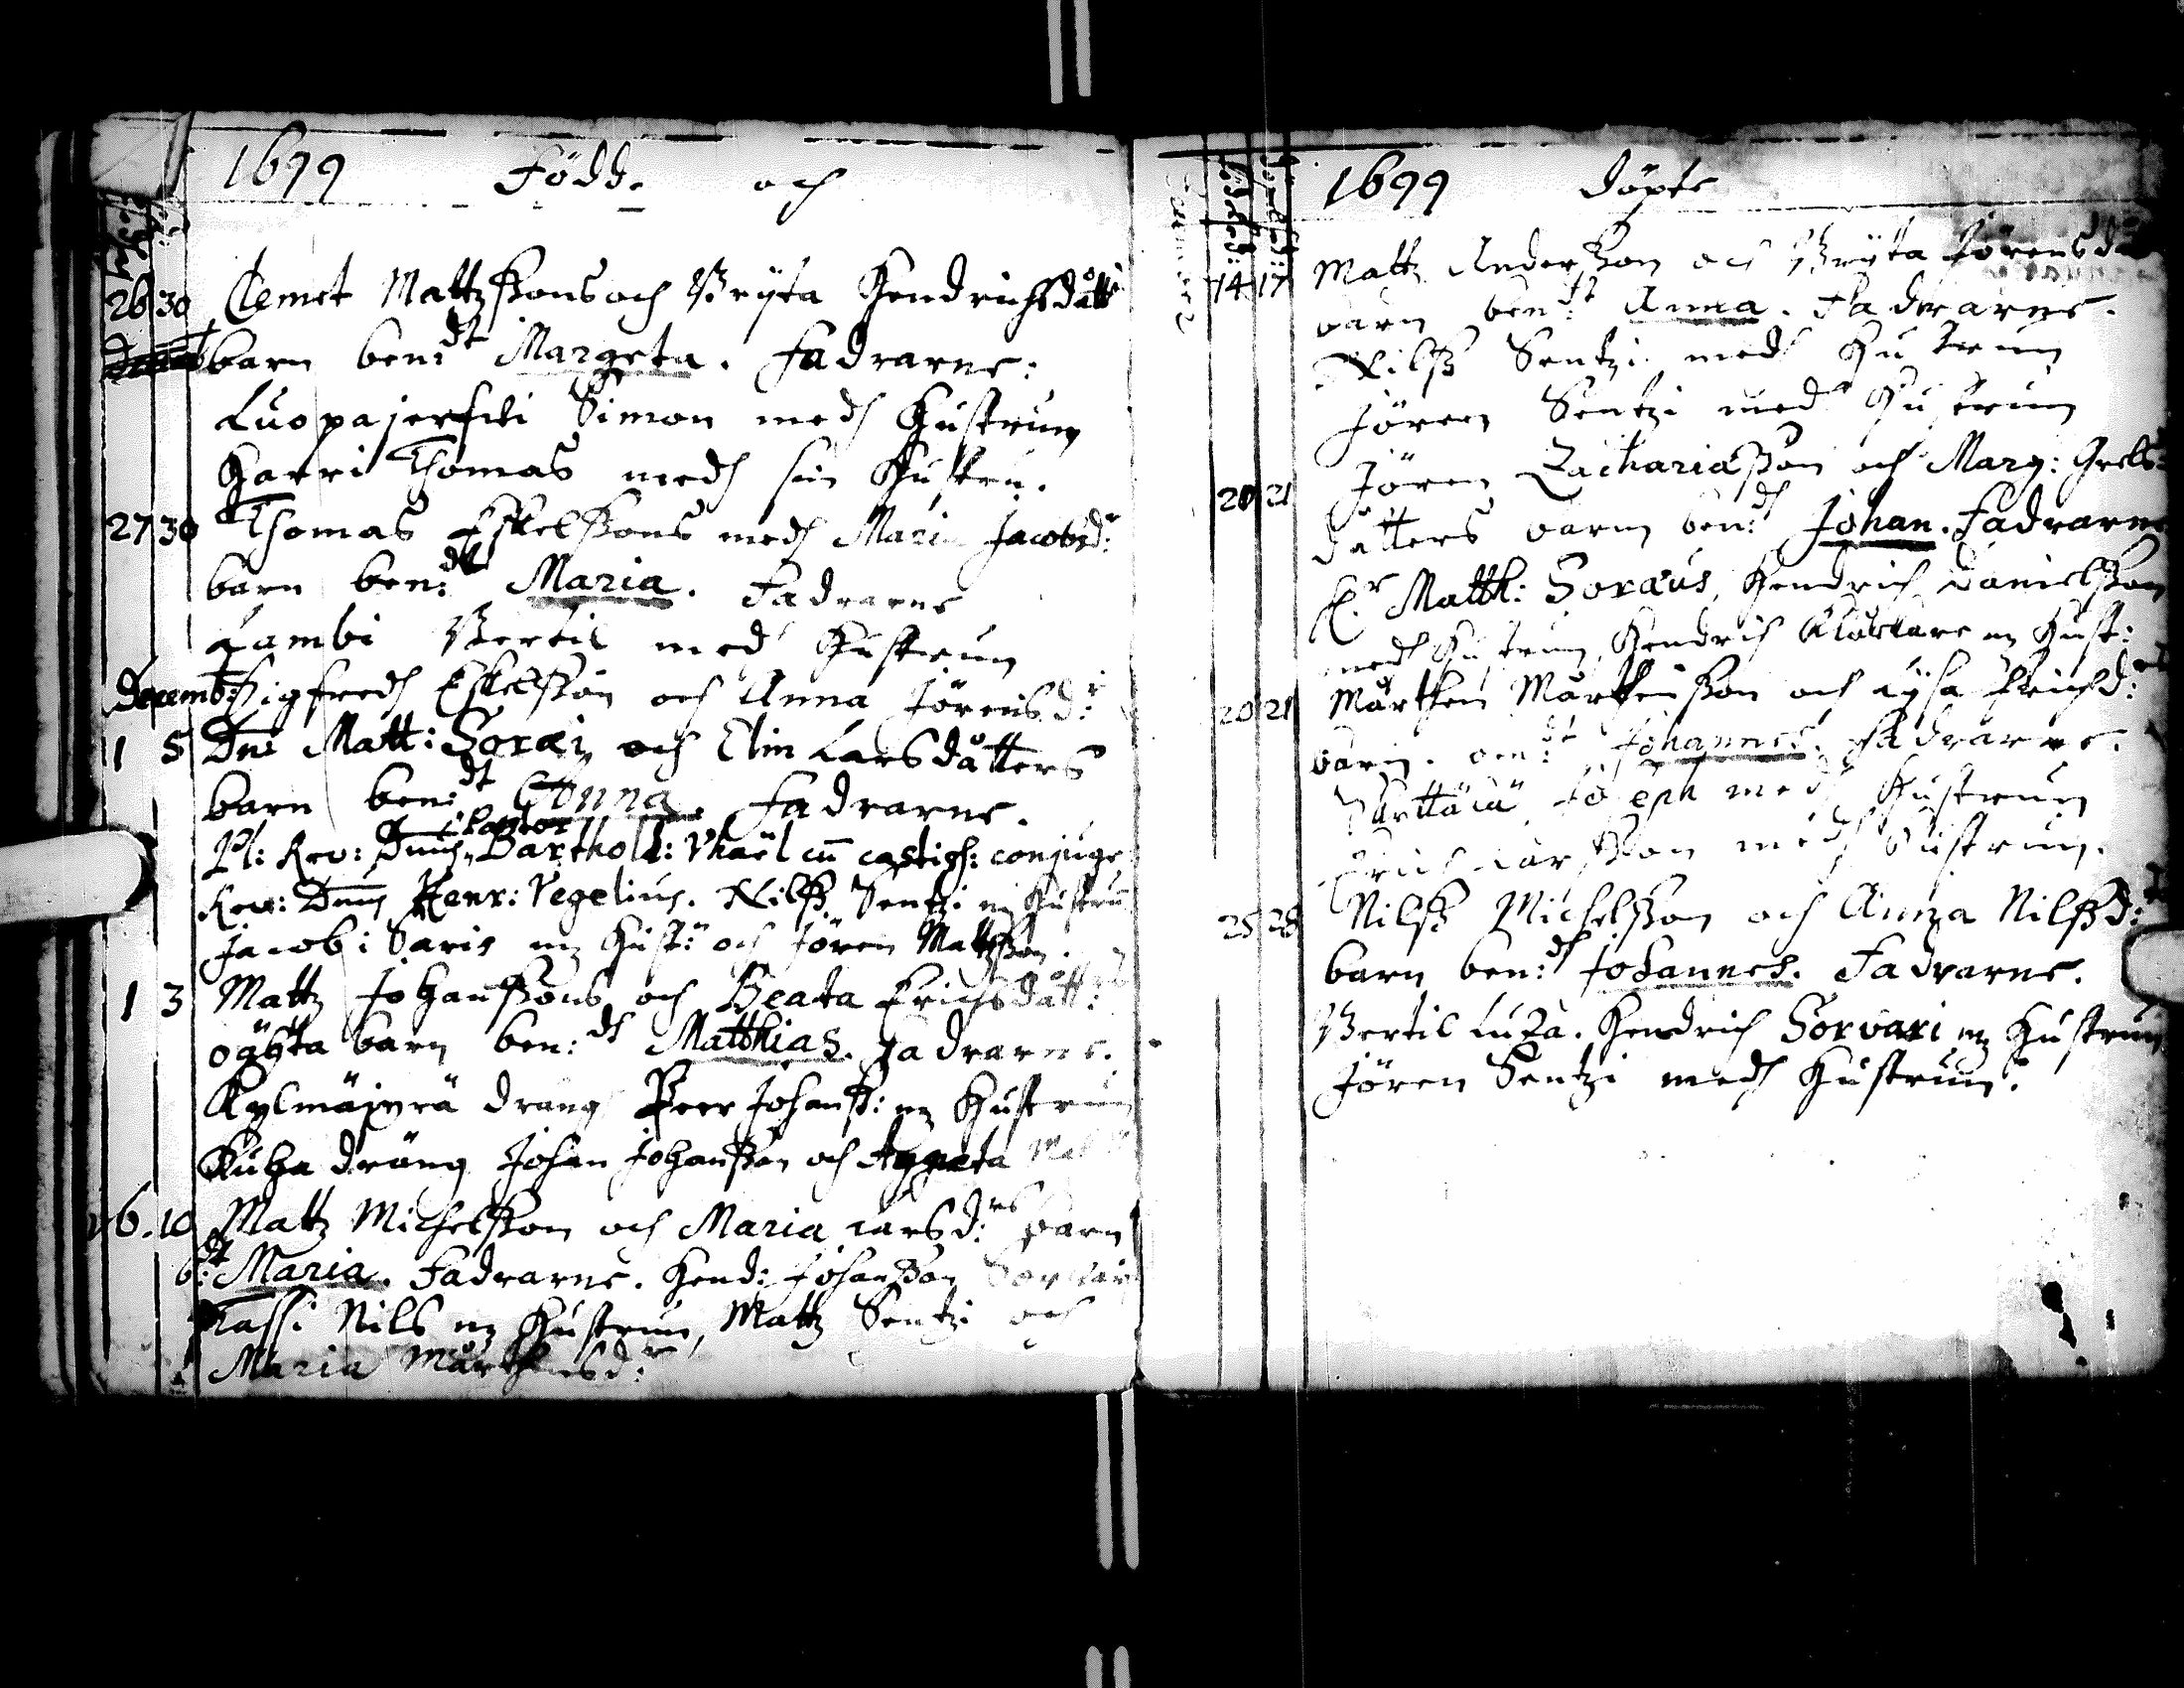 1699 Födde och
26 30 Clemet Mattzßons och Bryta Hendrichsdått:
barn ben:dt Margeta. Fadrarne:
Luopajerfwi Simon medh Hustrun
Harri Thomas medh sin Hustru.
27 30 Thomas Eskelßons medh Maria Jacobsd:r
barn ben:dt Maria. Fadrarne
Lambi Bertil medh Hustrun
Decemb: Sigfredh Eskelßon och Anna Jörensd:r
1 5 Dni Matt: Soræi och Elin Larsdåtters
barn ben:dt Anna. Fadrarne.
Pl: Rev: Dnus Pastor Barthold: Vhaël cu castiss: conjuge
Rev: Dnus Henr: Vegelius. Nilß Sentzi m Hustru
Jacob i Saris m Hust: och Jören Mattzßon.
1 3 Mattz Johanßons och Beata Erichsdått:
oägta barn ben:dt Matthias. Fadrarne.
Kylmäjerä dräng Peer Johanß: m Hustrun
Kuha dräng Johan Johanßon och Agneta
6. 10 Mattz Michelßon och Maria Larsd:rs barn
b:dt Maria. Fadrarne. Hend: Johanßon Sorvari
Kassi Nils m Hustrun, Mattz Sentzi och
Maria Mårthensd:r
1699 döpte
14 17 Mattz Anderßon och Bryta Jörensdå
barn ben:dt Anna. Fadrarne.
Nilß Sentzi medh Hustrun
Jören Sentzi medh Hustrun
20 21 Jören Zachariaßon och Marg: Grels-
dåtters barn ben:dt Johan. Fadrarne
H:r Matth: Soræus, Hendrich Danielßon
medh Hustrun, Hendrich Klåckare m Hust:
20 21 Mårthen Mårthenßon och Lysa Erichsd:
barn. ben:dt Johannes. Fadrarne.
Joseph medh Hustrun
Erich Larßon medh Hustrun.
25 28 Nilß Michelßon och Anna Nilßd:
barn ben:dt Johannes. Fadrarne.
Bertil Luza. Hendrich Sorvari m Hustrun
Jören Sentzi medh Hustrun.